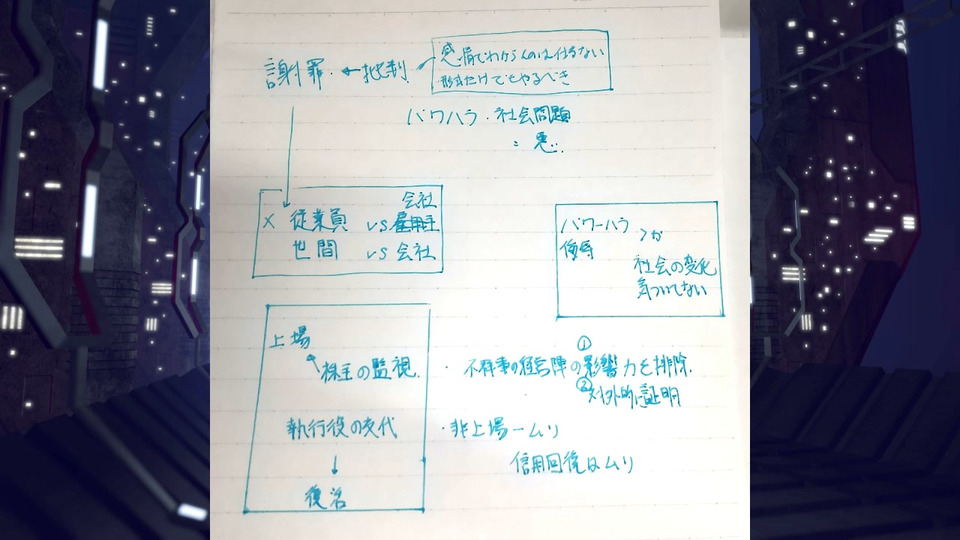 謝罪 ← 批判 ←
形式だけでもやるべき
パワハラ・社会問題
: 悪
会社
× 従業員 vs 雇用主
世間 vs 会社
パワーハラ
侮辱 とか
社会の変化
気づいてない
上場
株主の監視
執行役の交代
↓
復活
①
・不祥事の経営陣の影響力を排除.
②対外的に証明
・非上場ームリ
信用回復はムリ